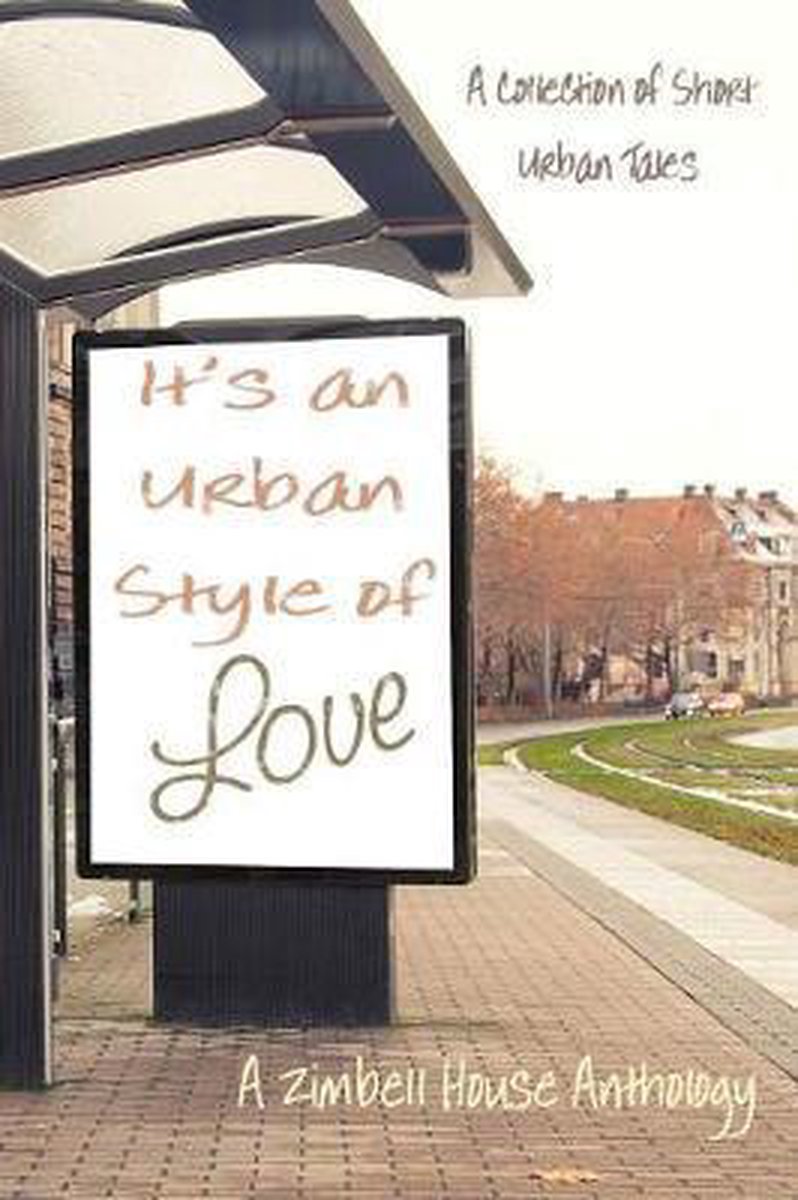 A Collection of Short
Urban Tales
It's an
Urban
Style of
Love
A Zimbell House Anthology